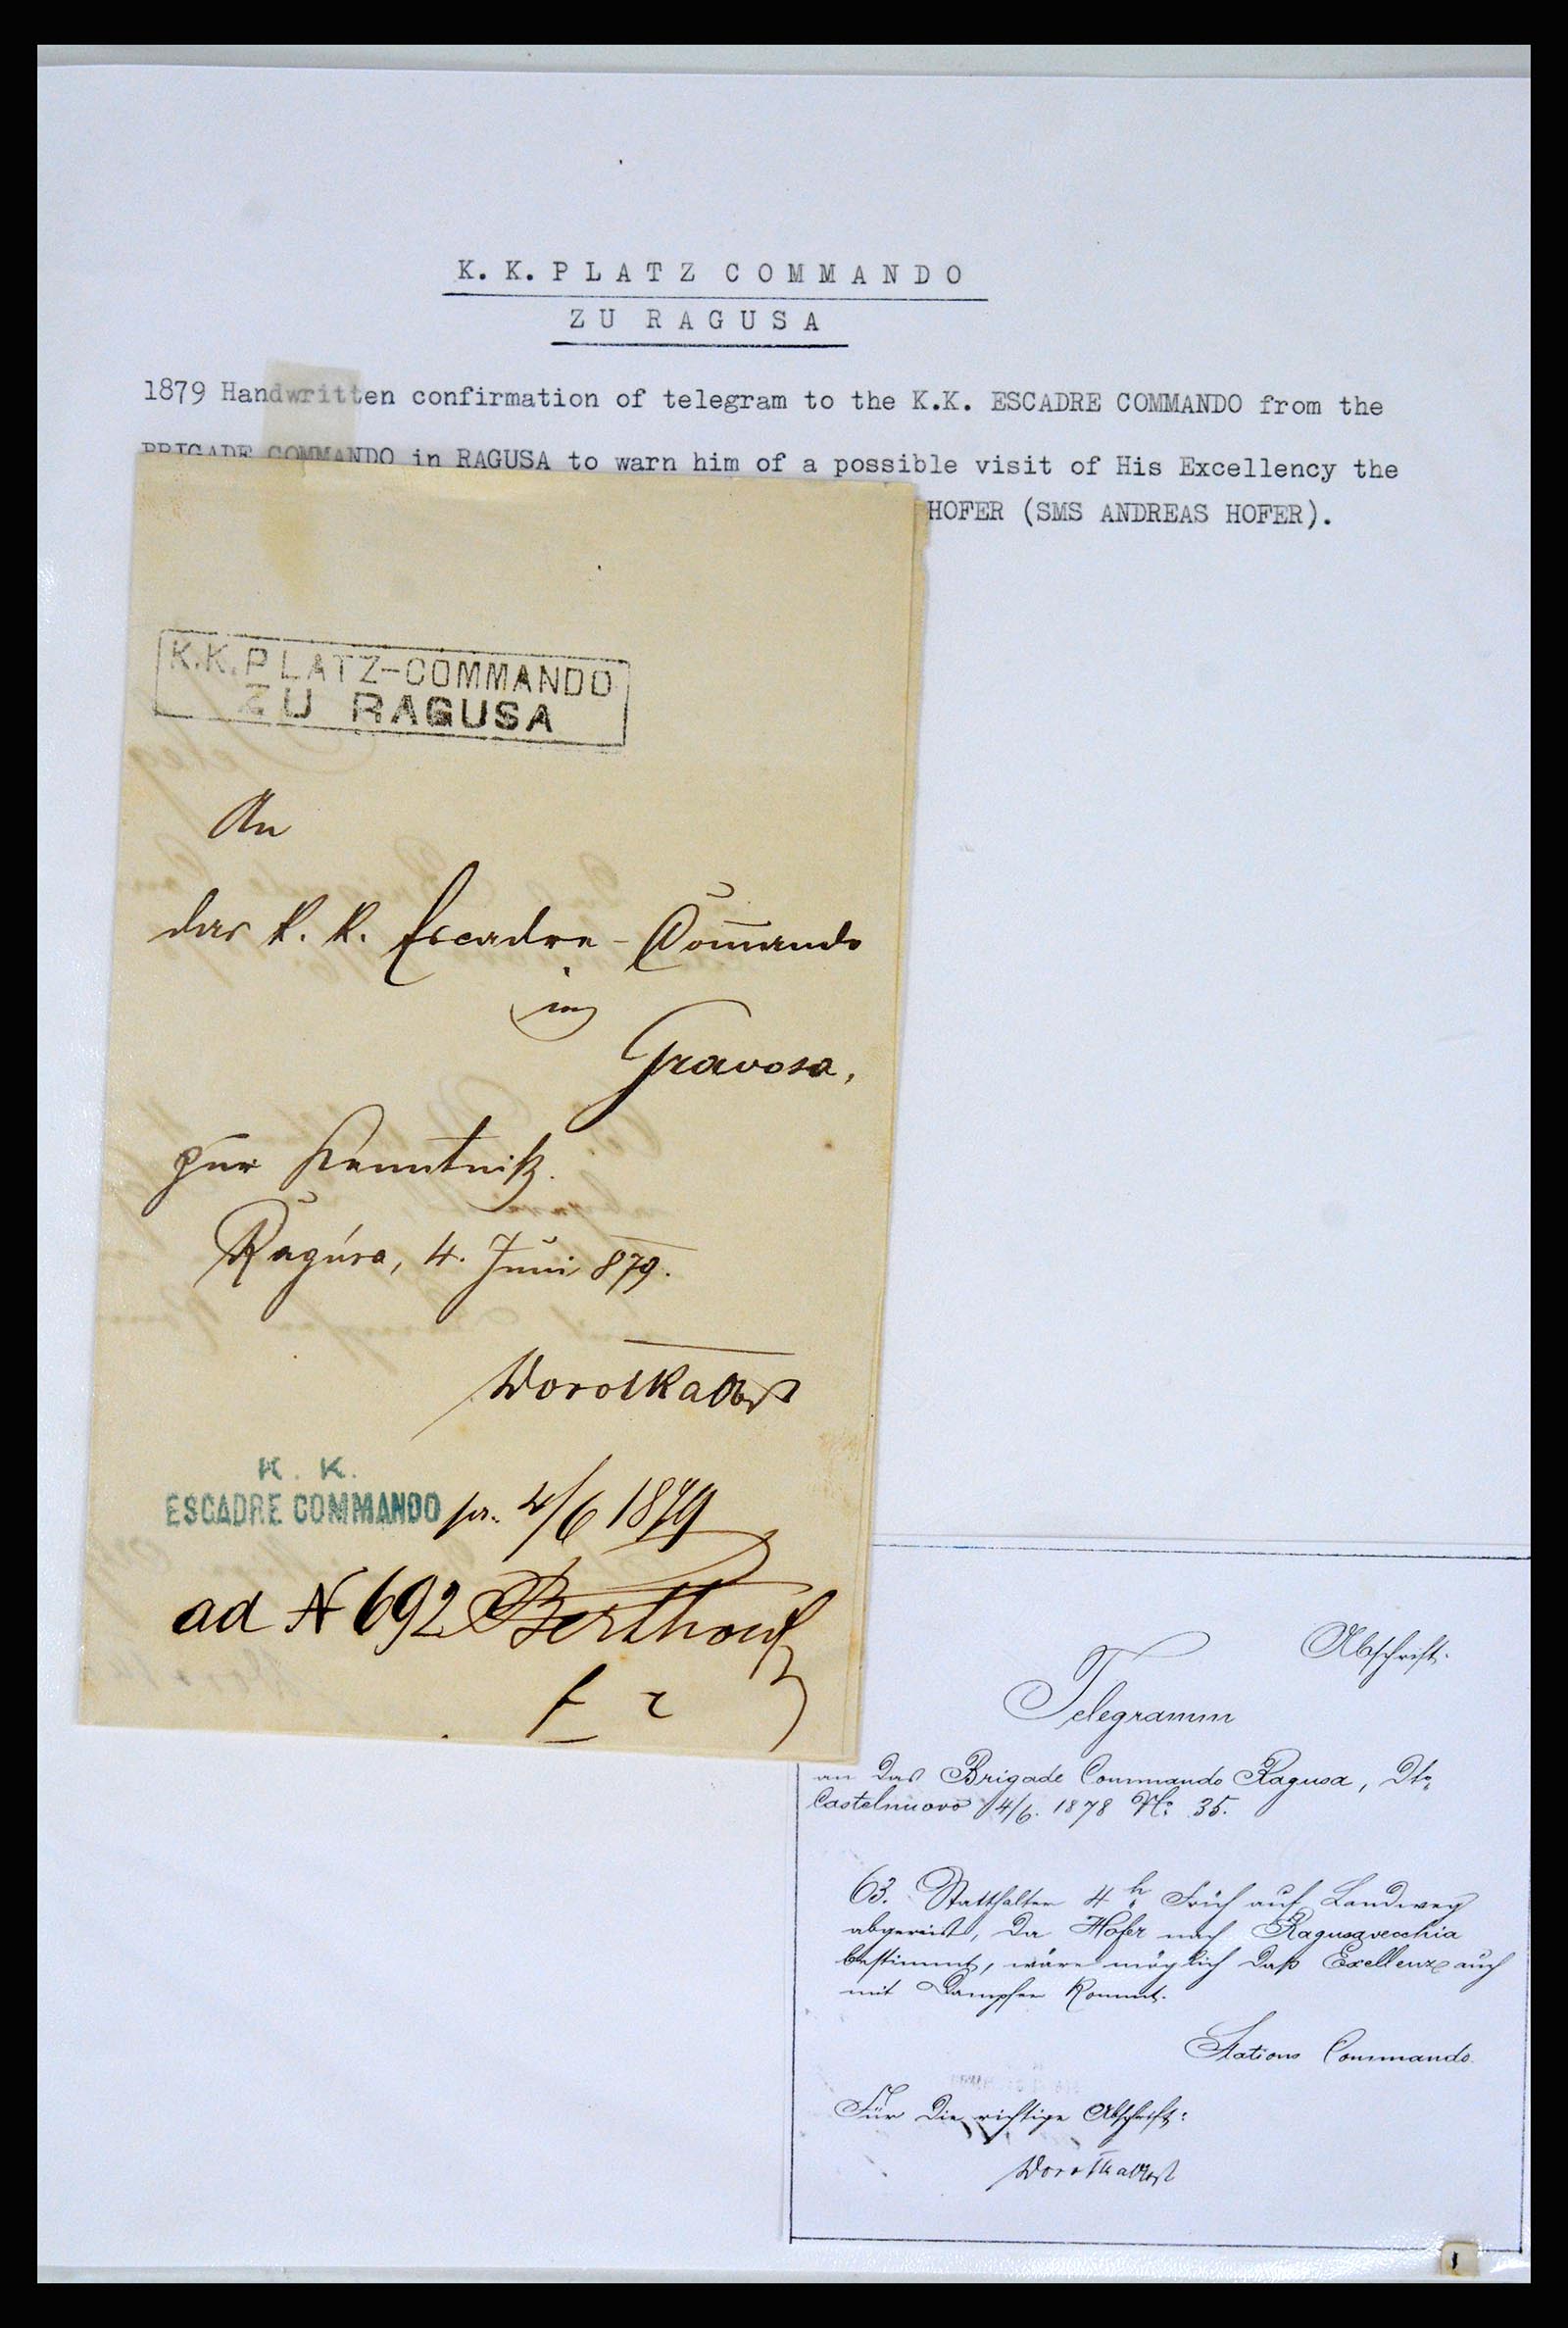 K. K. PLATZ COMMANDO
ZU RAGUSA
1879 Handwritten confirmation of telegram to the K.K. ESCADRE COMMANDO from the
BRIGADE COMMANDO in RAGUSA to warn him of a possible visit of His Excellency the
HOFER (SMS ANDREAS HOFER).
K.K. PLATZ-COMMANDO
ZU RAGUSA
An
das k. k. Escadre-Com̄ando
in
Gravosa,
zur Kenntniß.
Ragusa, 4. Juni 879.
Worotka Obst
K. K.
ESCADRE COMMANDO pr. 4/6 1879
ad N 692
Abschrift.
Telegramm
an das Brigade Commando Ragusa, Dto
Castelnuovo 4/6. 1878 No 35.
63. Statthalter 4h Früh auf Landweg
abgereist, da Hofer nach Ragusavecchia
bestimmt, wäre möglich daß Excellenz auch
mit Dampfer kommt.
Stations Commando
Für die richtige Abschrift:
Worotka Obst
1